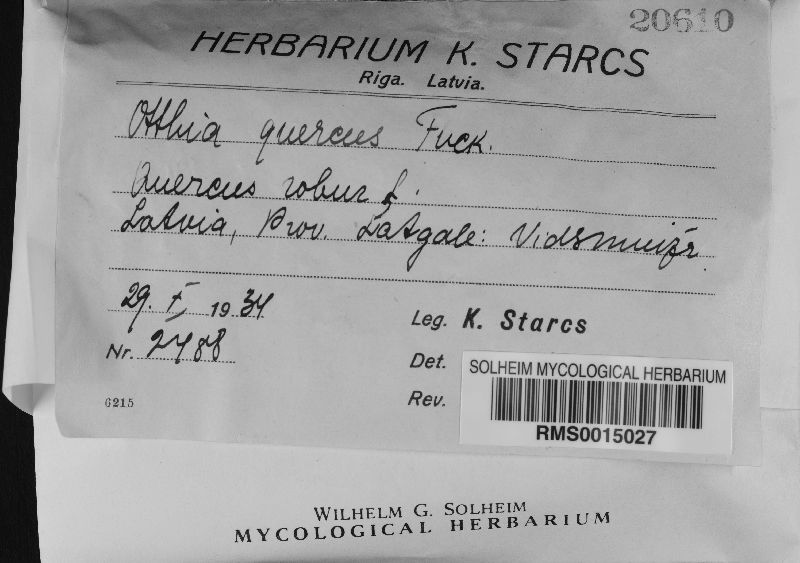 20610
HERBARIUM K. STARCS
Riga. Latvia.
Otthia quercus Fuck.
Quercus robur L.
Latvia, Prov. Latgale: Vidsmuiža.
29. X 1934
Leg. K. Starcs
Nr. 2488
Det.
Rev.
6215
SOLHEIM MYCOLOGICAL HERBARIUM
RMS0015027
WILHELM G. SOLHEIM
MYCOLOGICAL HERBARIUM